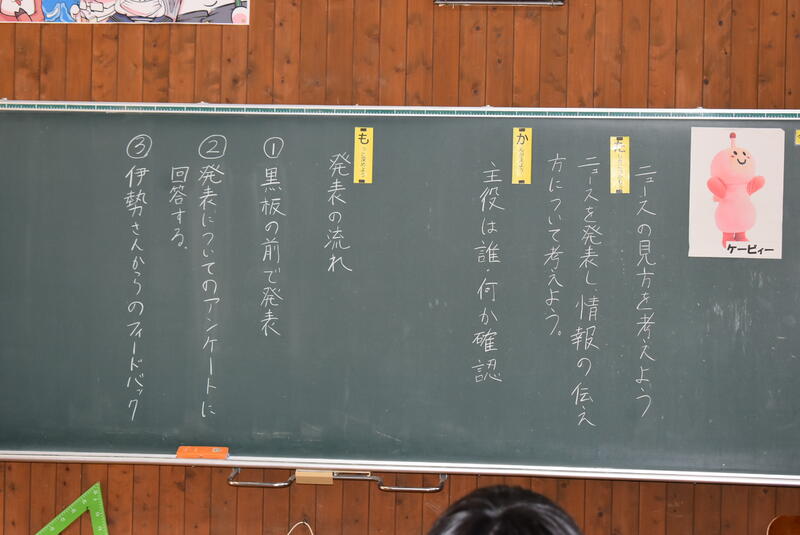 ケーピィー
ニュースの見方を考えよう
た
ニュースを発表し、情報の伝え
方について考えよう。
か
んがえよう
主役は誰・何か確認
も
っと深めよう
発表の流れ
①黒板の前で発表
②発表についてのアンケートに
回答する。
③伊勢さんからのフィードバック